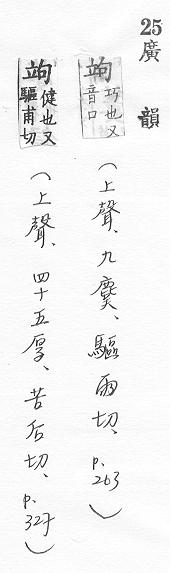 25
廣韻
竘 巧也又音口（上聲、九麌、驅雨切、p.263）
竘 健也又驅甫切（上聲、四十五厚、苦后切、p.327）